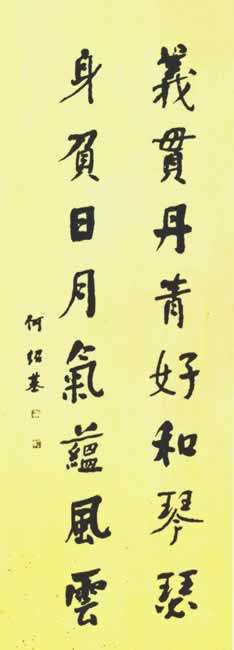 義貫丹青好和琴瑟
身負日月氣蘊風雲
何紹基